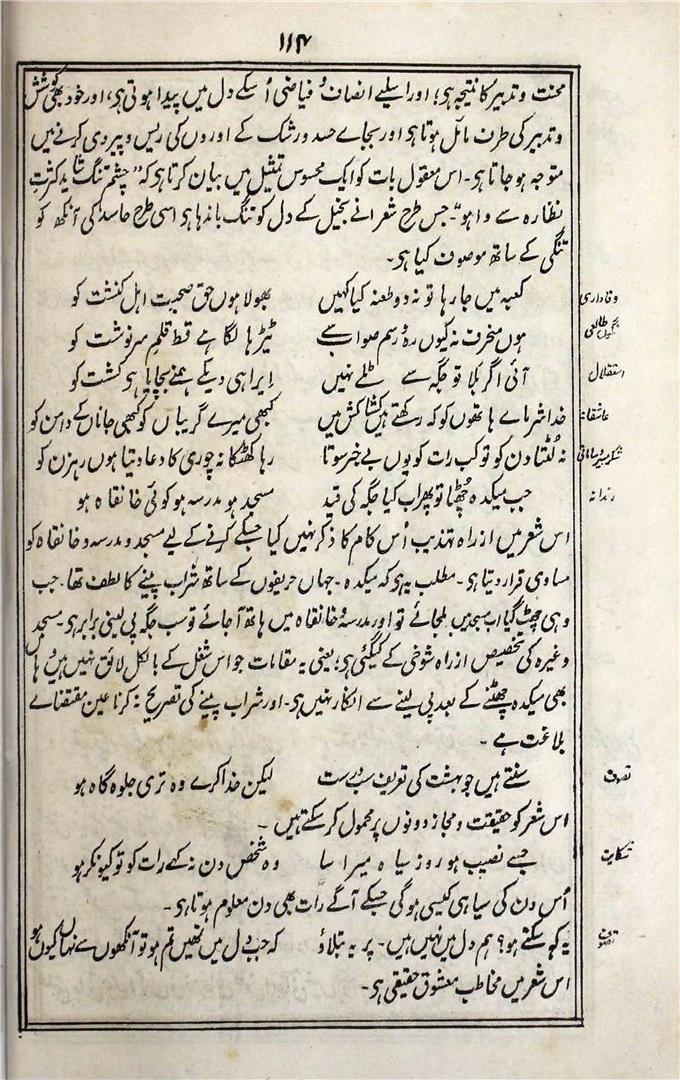 ۱۱۴
محنت و تدبیر کا نتیجہ ہی؛ اور اسلیے انصاف و فیاضی اُسکے دل میں پیدا ہوتی ہی، اور خود بھی کوشش
و تدبیر کی طرف مائل ہوتا ہی اور بجاے حسد و رشک کے اوروں کی ریس و پیروی کرنے میں
متوجہ ہو جاتا ہی۔ اس معقول بات کو ایک محسوس تمثیل میں بیان کرتا ہی کہ "چشم تنگ شاید کثرتِ
نظارہ سے وا ہو"۔ جس طرح شعرا نے بخیل کے دل کو تنگ باندھا ہی اسی طرح حاسد کی آنکھ کو
تنگی کے ساتھ موصوف کیا ہی۔
وفاداری کعبہ میں جا رہا تو نہ دو طعنہ کیا کہیں بھولا ہوں حق صحبت اہل کنشت کو
ہوں منحرف نہ کیوں رہ و رسم صواب سے ٹیڑھا لگا ہے قط قلمِ سرنوشت کو
استقلال آئی اگر بلا تو جگہ سے ٹلے نہیں ایرا ہی دیکے ہمنے بچایا ہی کشت کو
عاشقانہ خدا شرماے ہاتھوں کو کہ رکھتے ہیں کشاکش میں کبھی میرے گریباں کو کبھی جاناں کے دامن کو
نہ لُٹتا دن کو تو کب رات کو یوں بے خبر سوتا رہا کھٹکا نہ چوری کا دعا دیتا ہوں رہزن کو
رندانہ جب میکدہ چھُٹا تو پھر اب کیا جگہ کی قید مسجد ہو مدرسہ ہو کوئی خانقاہ ہو
اس شعر میں از راہ تہذیب اُس کام کا ذکر نہیں کیا جسکے کرنے کے لیے مسجد و مدرسہ و خانقاہ کو
مساوی قرار دیتا ہی۔ مطلب یہ ہی کہ میکدہ۔ جہاں حریفوں کے ساتھ شراب پینے کا لطف تھا۔ جب
وہی چھٹ گیا اب مسجد میں ملجائے تو اور مدرسہ و خانقاہ میں ہاتھ آ جائے تو سب جگہ پی لینی برابر ہی۔ مسجد
وغیرہ کی تخصیص از راہ شوخی کے کیگئی ہی؛ یعنی یہ مقامات جو اس شغل کے بالکل لائق نہیں ہیں وہاں
بھی میکدہ چھٹنے کے بعد پی لینے سے انکار نہیں ہی۔ اور شراب پینے کی تصریح نہ کرنا عین مقتضاے
بلاغت ہے۔
تصوف سنتے ہیں جو بہشت کی تعریف سب درست لیکن خدا کرے وہ تری جلوہ گاہ ہو
اس شعر کو حقیقت و مجاز دونوں پر محمول کر سکتے ہیں۔
شکایت جسے نصیب ہو روز سیاہ میرا سا وہ شخص دن نہ کہے رات کو تو کیونکر ہو
اُس دن کی سیاہی کیسی ہوگی جسکے آگے رات بھی دن معلوم ہوتا ہی۔
تصوف یہ کہہ سکتے ہو؟ ہم دل میں نہیں ہیں۔ پر یہ بتلاؤ کہ جب دل میں تمھیں تم ہو تو آنکھوں سے نہاں کیوں ہو
اس شعر میں مخاطب معشوق حقیقی ہی۔